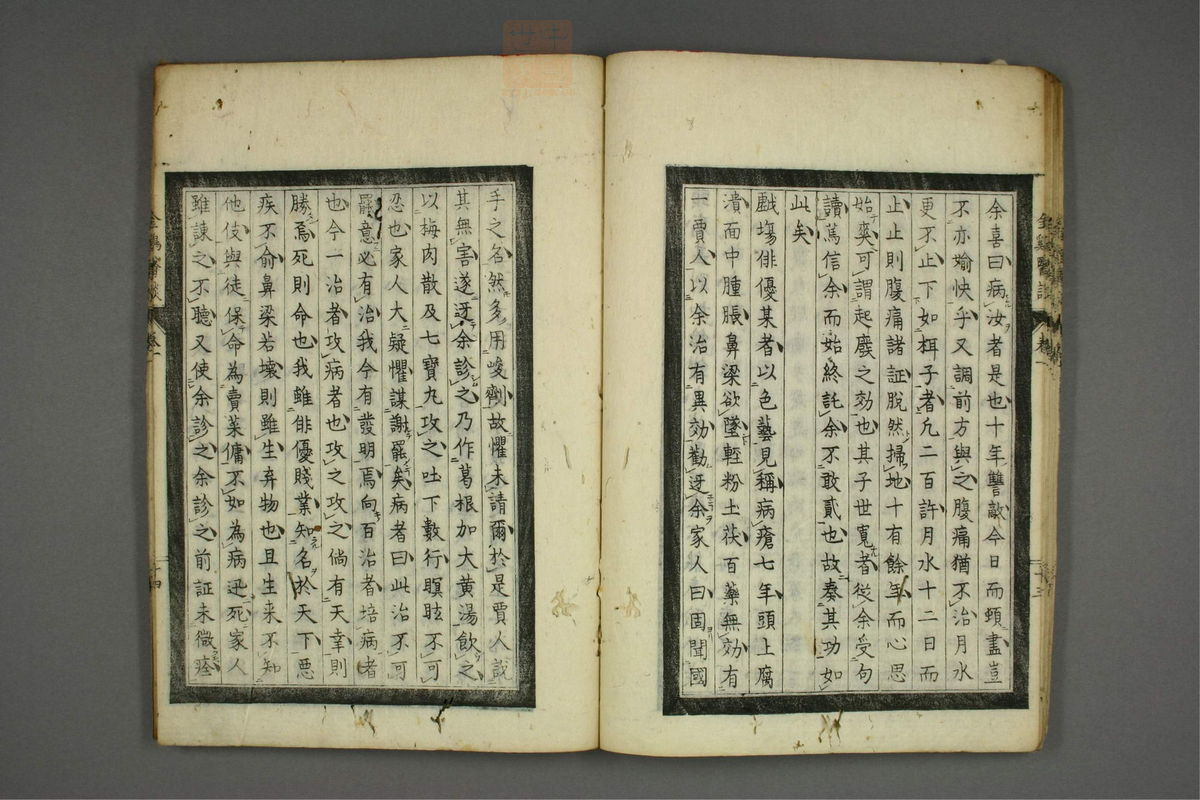 余喜曰病汝者是也十年讐敵今日而頸盡豈
不亦媮快乎又調前方與之腹痛猶不治月水
更不止下如栮子者凡二百許月水十二日而
止止則腹痛諸証脫然掃地十有餘年而心思
始爽可謂起廢之効也其子世寬者從余受句
讀篤信余而始終託余不敢貳也故奏其功如
此矣
戲場俳優某者以色藝見稱病瘡七年頭上腐
潰面中腫脹鼻梁欲墜輕粉土茯百藥無効有
一賈人以余治有異効勸迓余家人曰固聞國
手之名然多用峻劑故懼未請爾於是賈人說
其無害遂迓余診之乃作葛根加大黄湯飲之
以梅肉散及七寶丸攻之吐下數行瞑眩不可
忍也家人大疑懼謀謝罷矣病者曰此治不可
罷意必有治我今有發明焉向百治者培病者
也今一治者攻病者也攻之攻之倘有天幸則
勝焉死則命也我雖俳優賤業知名於天下惡
疾不愈鼻梁若壞則雖生弃物也且生来不知
他伎與徒保命為賣菜傭不如為病迅死家人
雖諫之不聽又使余診之余診之前証未微痊
卷一
十四